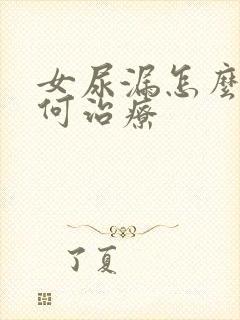 女尿漏怎麼
何治療
了夏